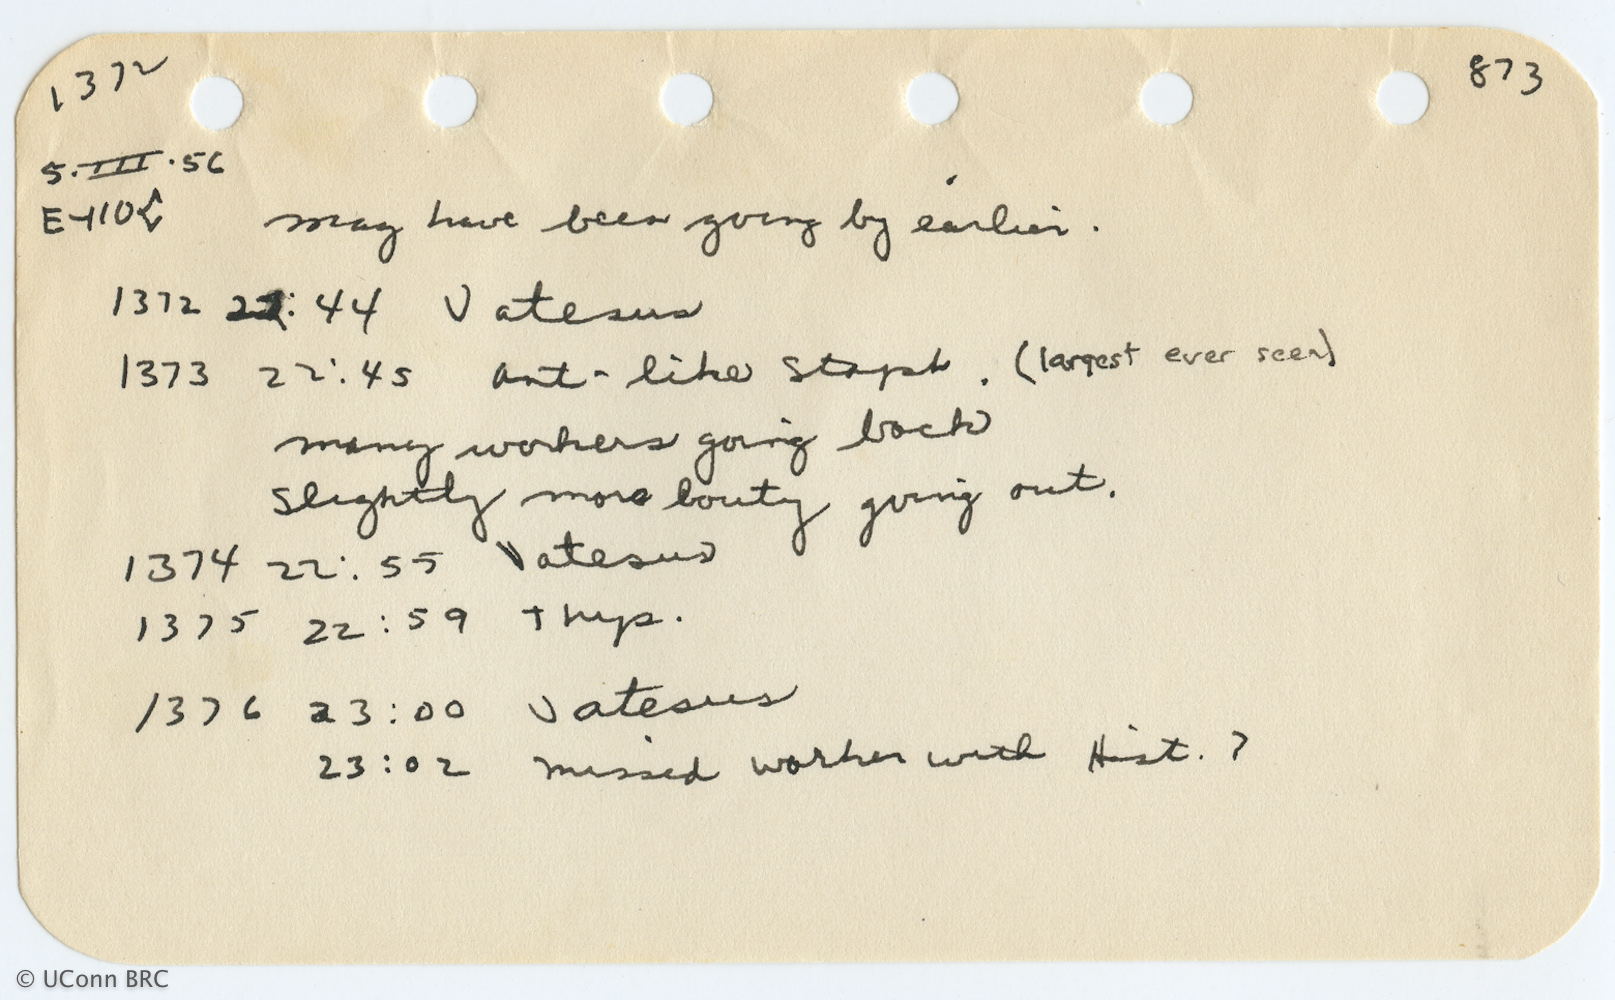 1372 873
5.III.56
E-110 may have been going by earlier.
1372 22:44 Vatesus
1373 22:45 ant-like Staph. (largest ever seen)
many workers going back
slightly more bouty going out.
1374 22:55 Vatesus
1375 22:59 Thys.
1376 23:00 Vatesus
23:02 missed worker with Hist. ?
© UConn BRC